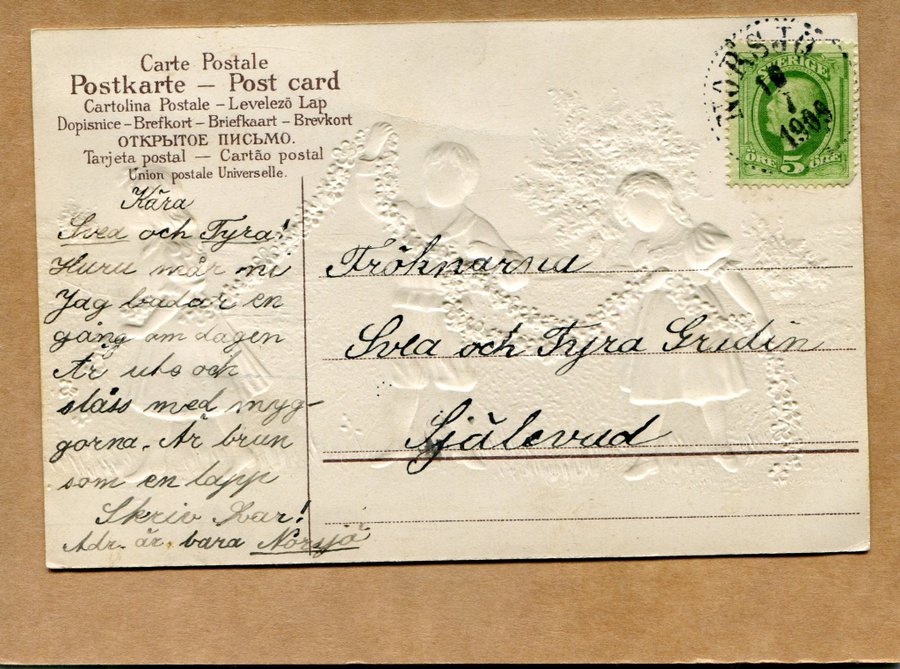 Carte Postale
Postkarte — Post card
Cartolina Postale – Levelezö Lap
Dopisnice – Brefkort – Briefkaart – Brevkort
ОТКРЫТОЕ ПИСЬМО.
Tarjeta postal — Cartão postal
Union postale Universelle.
NORSJÖ
16
7
SVERIGE
ÖRE 5 ÖRE
Kära
Svea och Tyra!
Huru mår ni
Jag badar en
gång om dagen
Är ute och
slåss med myg-
gorna. Är brun
som en lapp
Skriv svar!
Adr. är bara Norsjö
Fröknarna
Svea och Tyra Gredin
Själevad